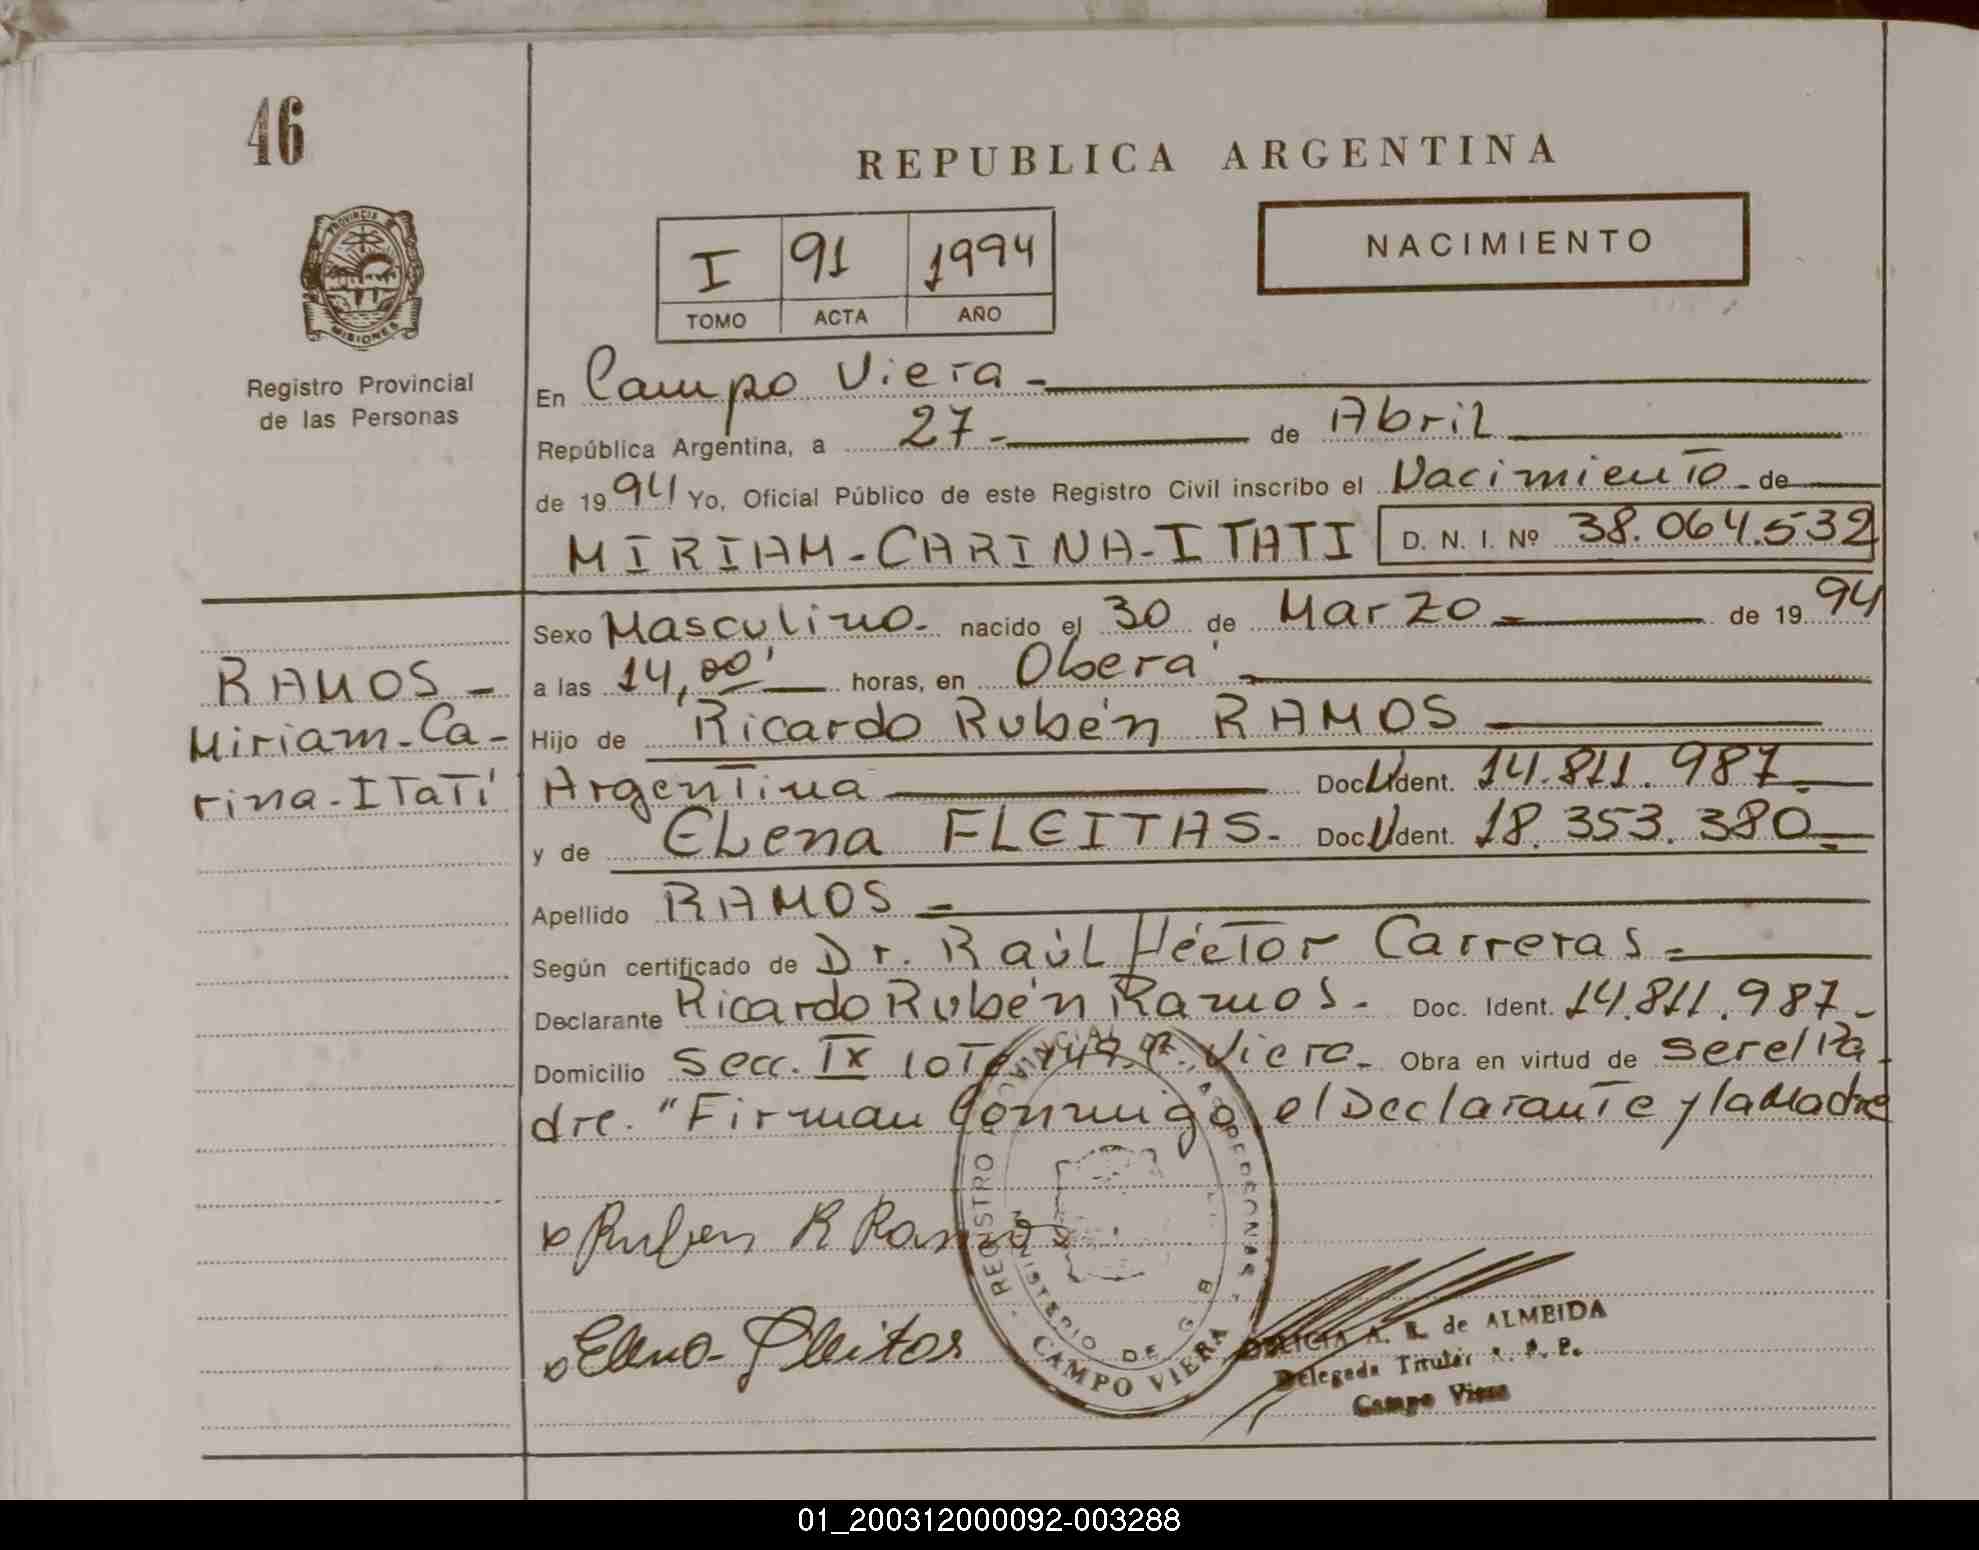 46
REPUBLICA ARGENTINA
PROVINCIA
MISIONES
NACIMIENTO
I 91 1994
TOMO ACTA AÑO
Registro Provincial
de las Personas
En Campo Viera -
República Argentina, a 27 - de Abril
de 1994 Yo, Oficial Público de este Registro Civil inscribo el Nacimiento - de
MIRIAM-CARINA-ITATI D. N. I. Nº 38.064.532
Sexo Masculino - nacido el 30 de Marzo - de 1994
a las 14,00' horas, en Oberá
Hijo de Ricardo Rubén RAMOS
Argentina Doc. Ident. 14.811.987
y de ELena FLEITAS - Doc. Ident. 18.353.380
Apellido RAMOS -
Según certificado de Dr. RaúL Héctor Carreras -
Declarante Ricardo Rubén Ramos - Doc. Ident. 14.811.987 -
Domicilio Secc. IX Lote Viera - Obra en virtud de ser el Pa-
dre. "Firman Conmigo el Declarante y la Madre
RAMOS -
Miriam-Ca-
rina-ITaTí
Ruben R Ramos
Elena Fleitas
REGISTRO PROVINCIAL DE LAS PERSONAS
MINISTERIO DE G
CAMPO VIERA
A. R. de ALMEIDA
Delegada Titular R. P. P.
Campo Viera
01_200312000092-003288